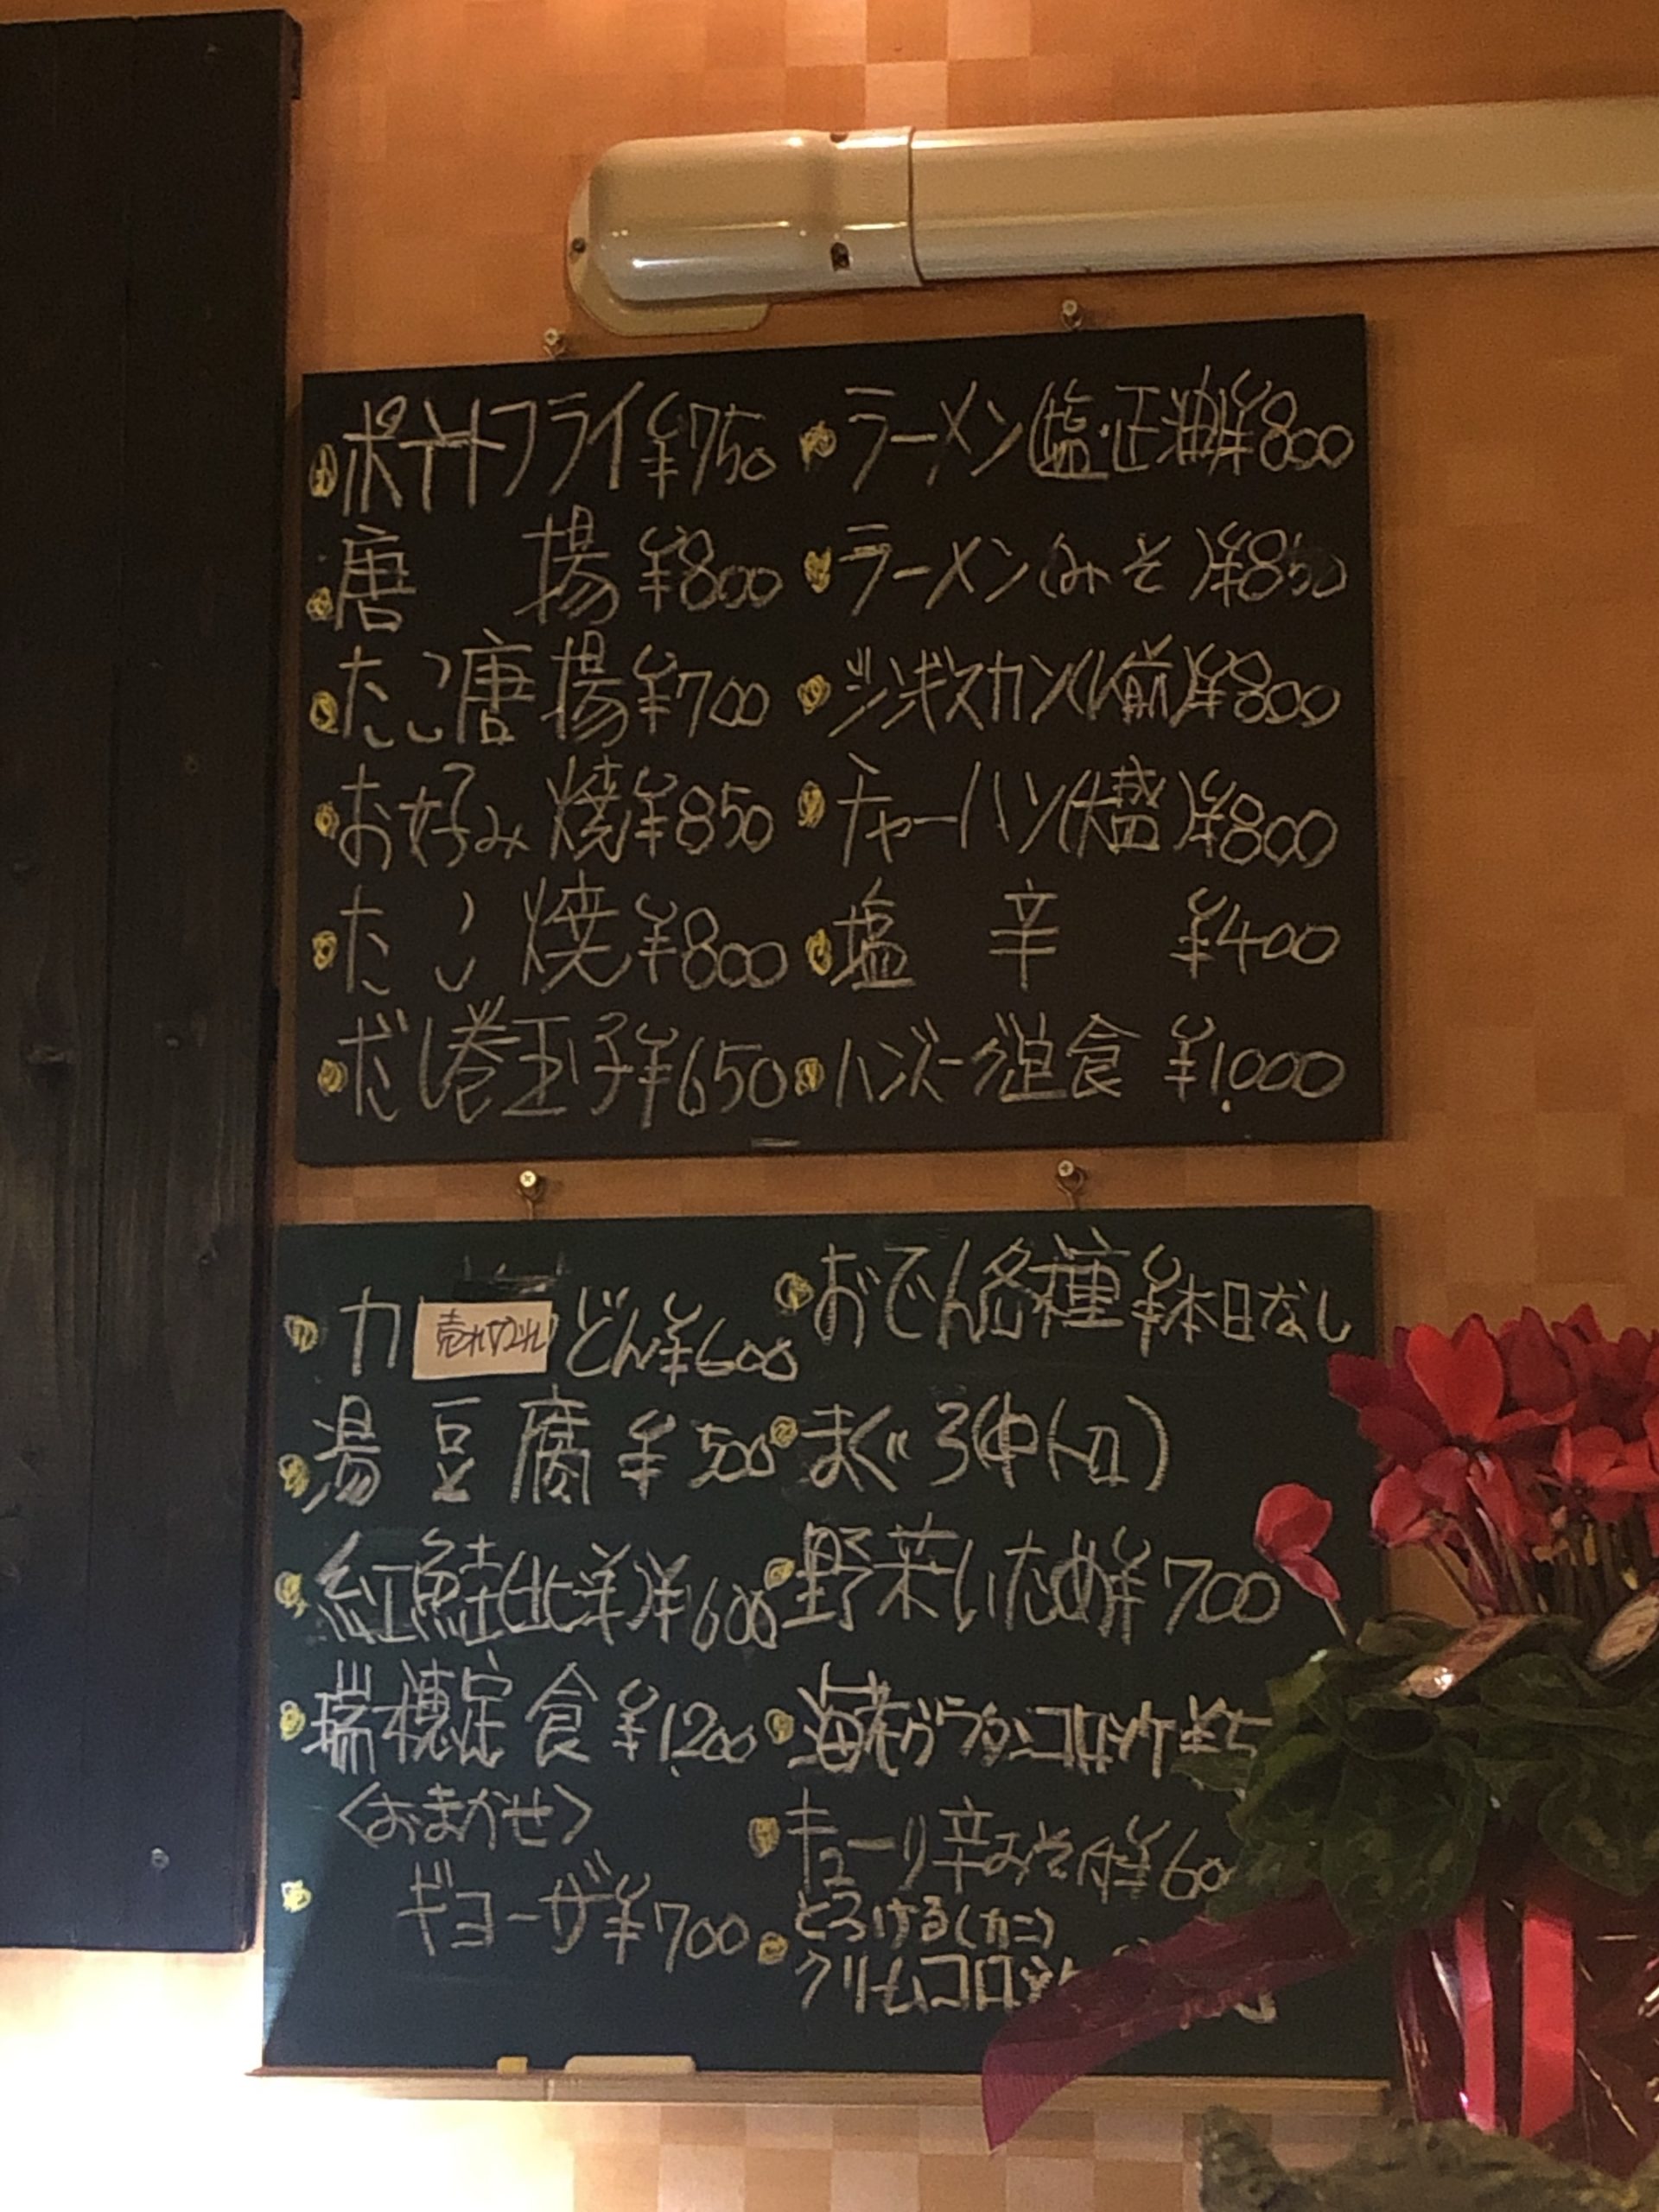 ポテトフライ¥750
唐揚¥800
たこ唐揚¥700
お好み焼¥850
たこ焼¥800
だし巻玉子¥650
ラーメン(塩・正油)¥800
ラーメン(みそ)¥850
ジンギスカン(1人前)¥800
チャーハン(大盛)¥800
塩辛 ¥400
ハンバーグ定食 ¥1,000
カ 売り切れ どん¥600
湯豆腐¥500
紅鮭(北洋)¥600
瑞穂定食¥1,200
<おまかせ>
ギョーザ¥700
おでん各種¥本日なし
まぐろ(中トロ)
野菜いため¥700
海老グラタンコロッケ¥5
キューリ辛みそ付¥60
とろける(カニ)
クリームコロッケ